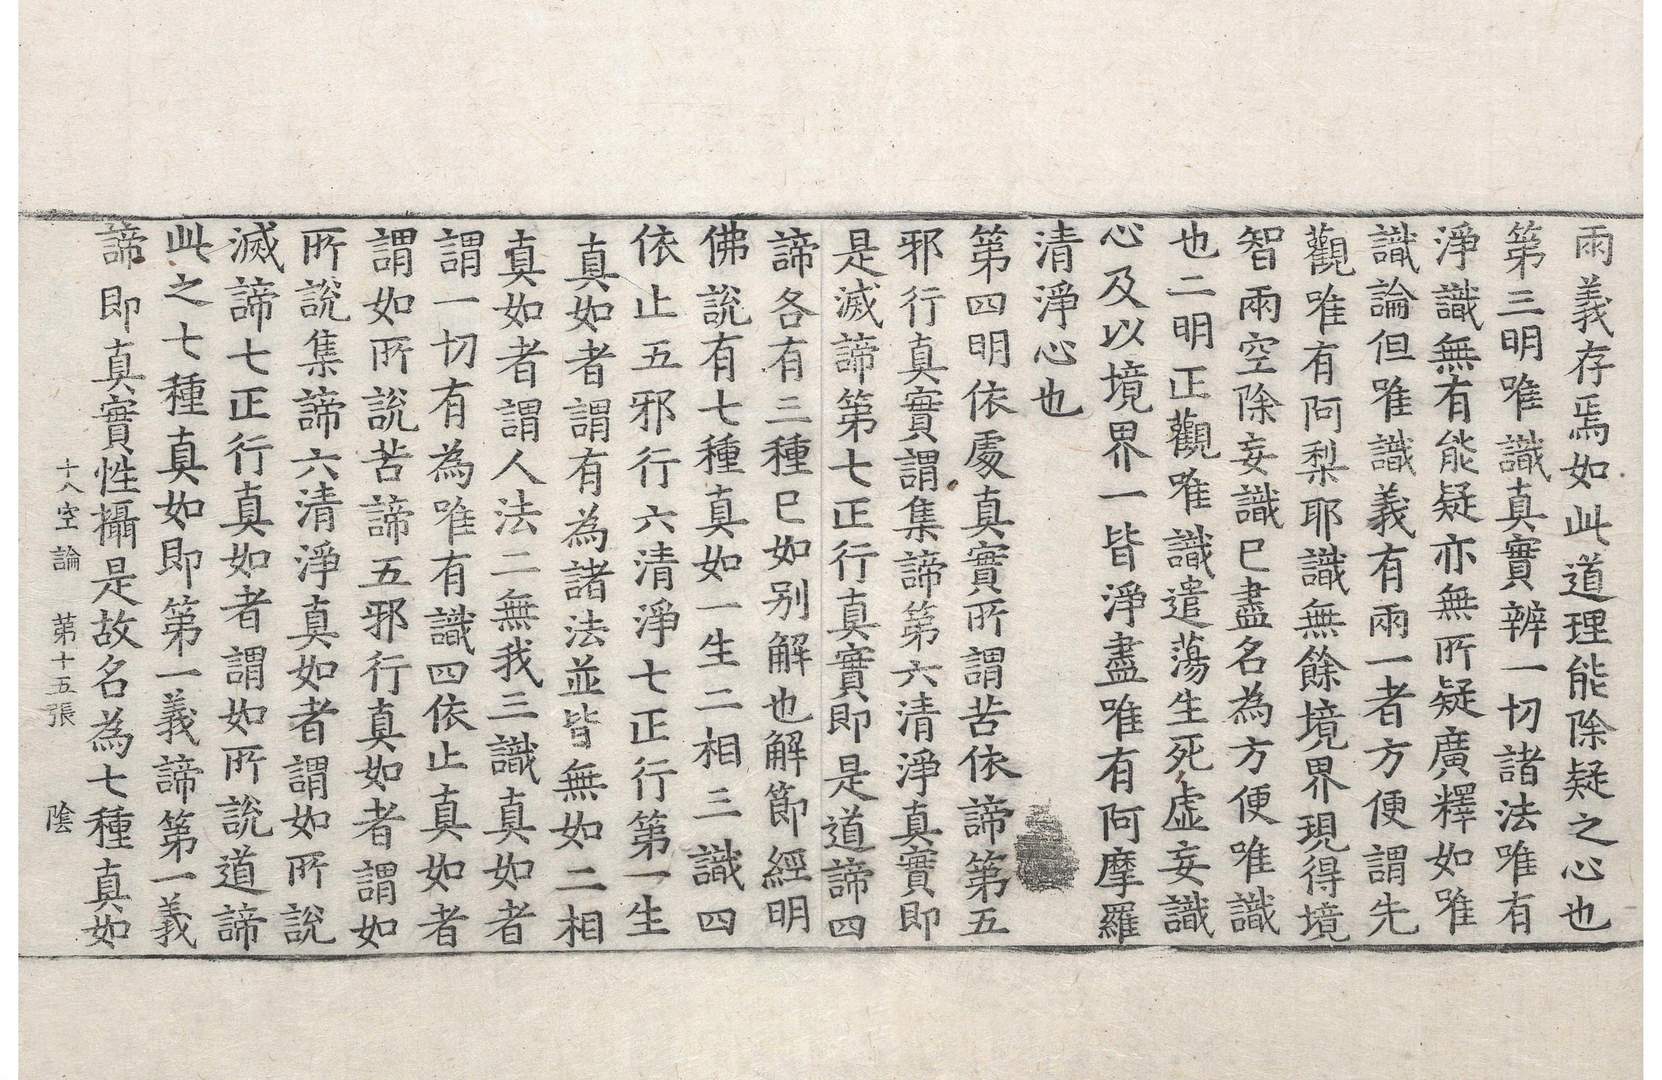 兩義存焉如此道理能除疑之心也
第三明唯識真實辨一切諸法唯有
淨識無有能疑亦無所疑廣釋如唯
識論但唯識義有兩一者方便謂先
觀唯有阿梨耶識無餘境界現得境
智兩空除妄識已盡名為方便唯識
也二明正觀唯識遣蕩生死虛妄識
心及以境界一皆淨盡唯有阿摩羅
清淨心也
第四明依處真實所謂苦依諦第五
邪行真實謂集諦第六清淨真實即
是滅諦第七正行真實即是道諦四
諦各有三種已如別解也解節經明
佛說有七種真如一生二相三識四
依止五邪行六清淨七正行第一生
真如者謂有為諸法並皆無如二相
真如者謂人法二無我三識真如者
謂一切有為唯有識四依止真如者
謂如所說苦諦五邪行真如者謂如
所說集諦六清淨真如者謂如所說
滅諦七正行真如者謂如所說道諦
此之七種真如即第一義諦第一義
諦即真實性攝是故名為七種真如
十八空論 第十五張 陰